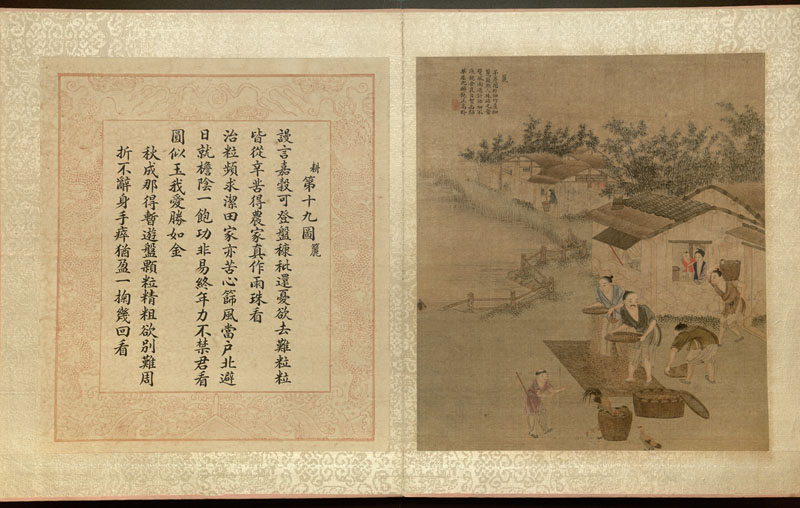 耕 第十九圖
謾言嘉穀可登盤糠秕還憂欲去難粒粒
皆從辛苦得農家真作雨珠看
治粒頻求潔田家亦苦心篩風當户北避
日就檐陰一飽功非易終年力不禁君看
圓似玉我愛勝如金
秋成那得暫遊盤顆粒精粗欲別難周
折不辭身手瘁猶盈一掬幾回看